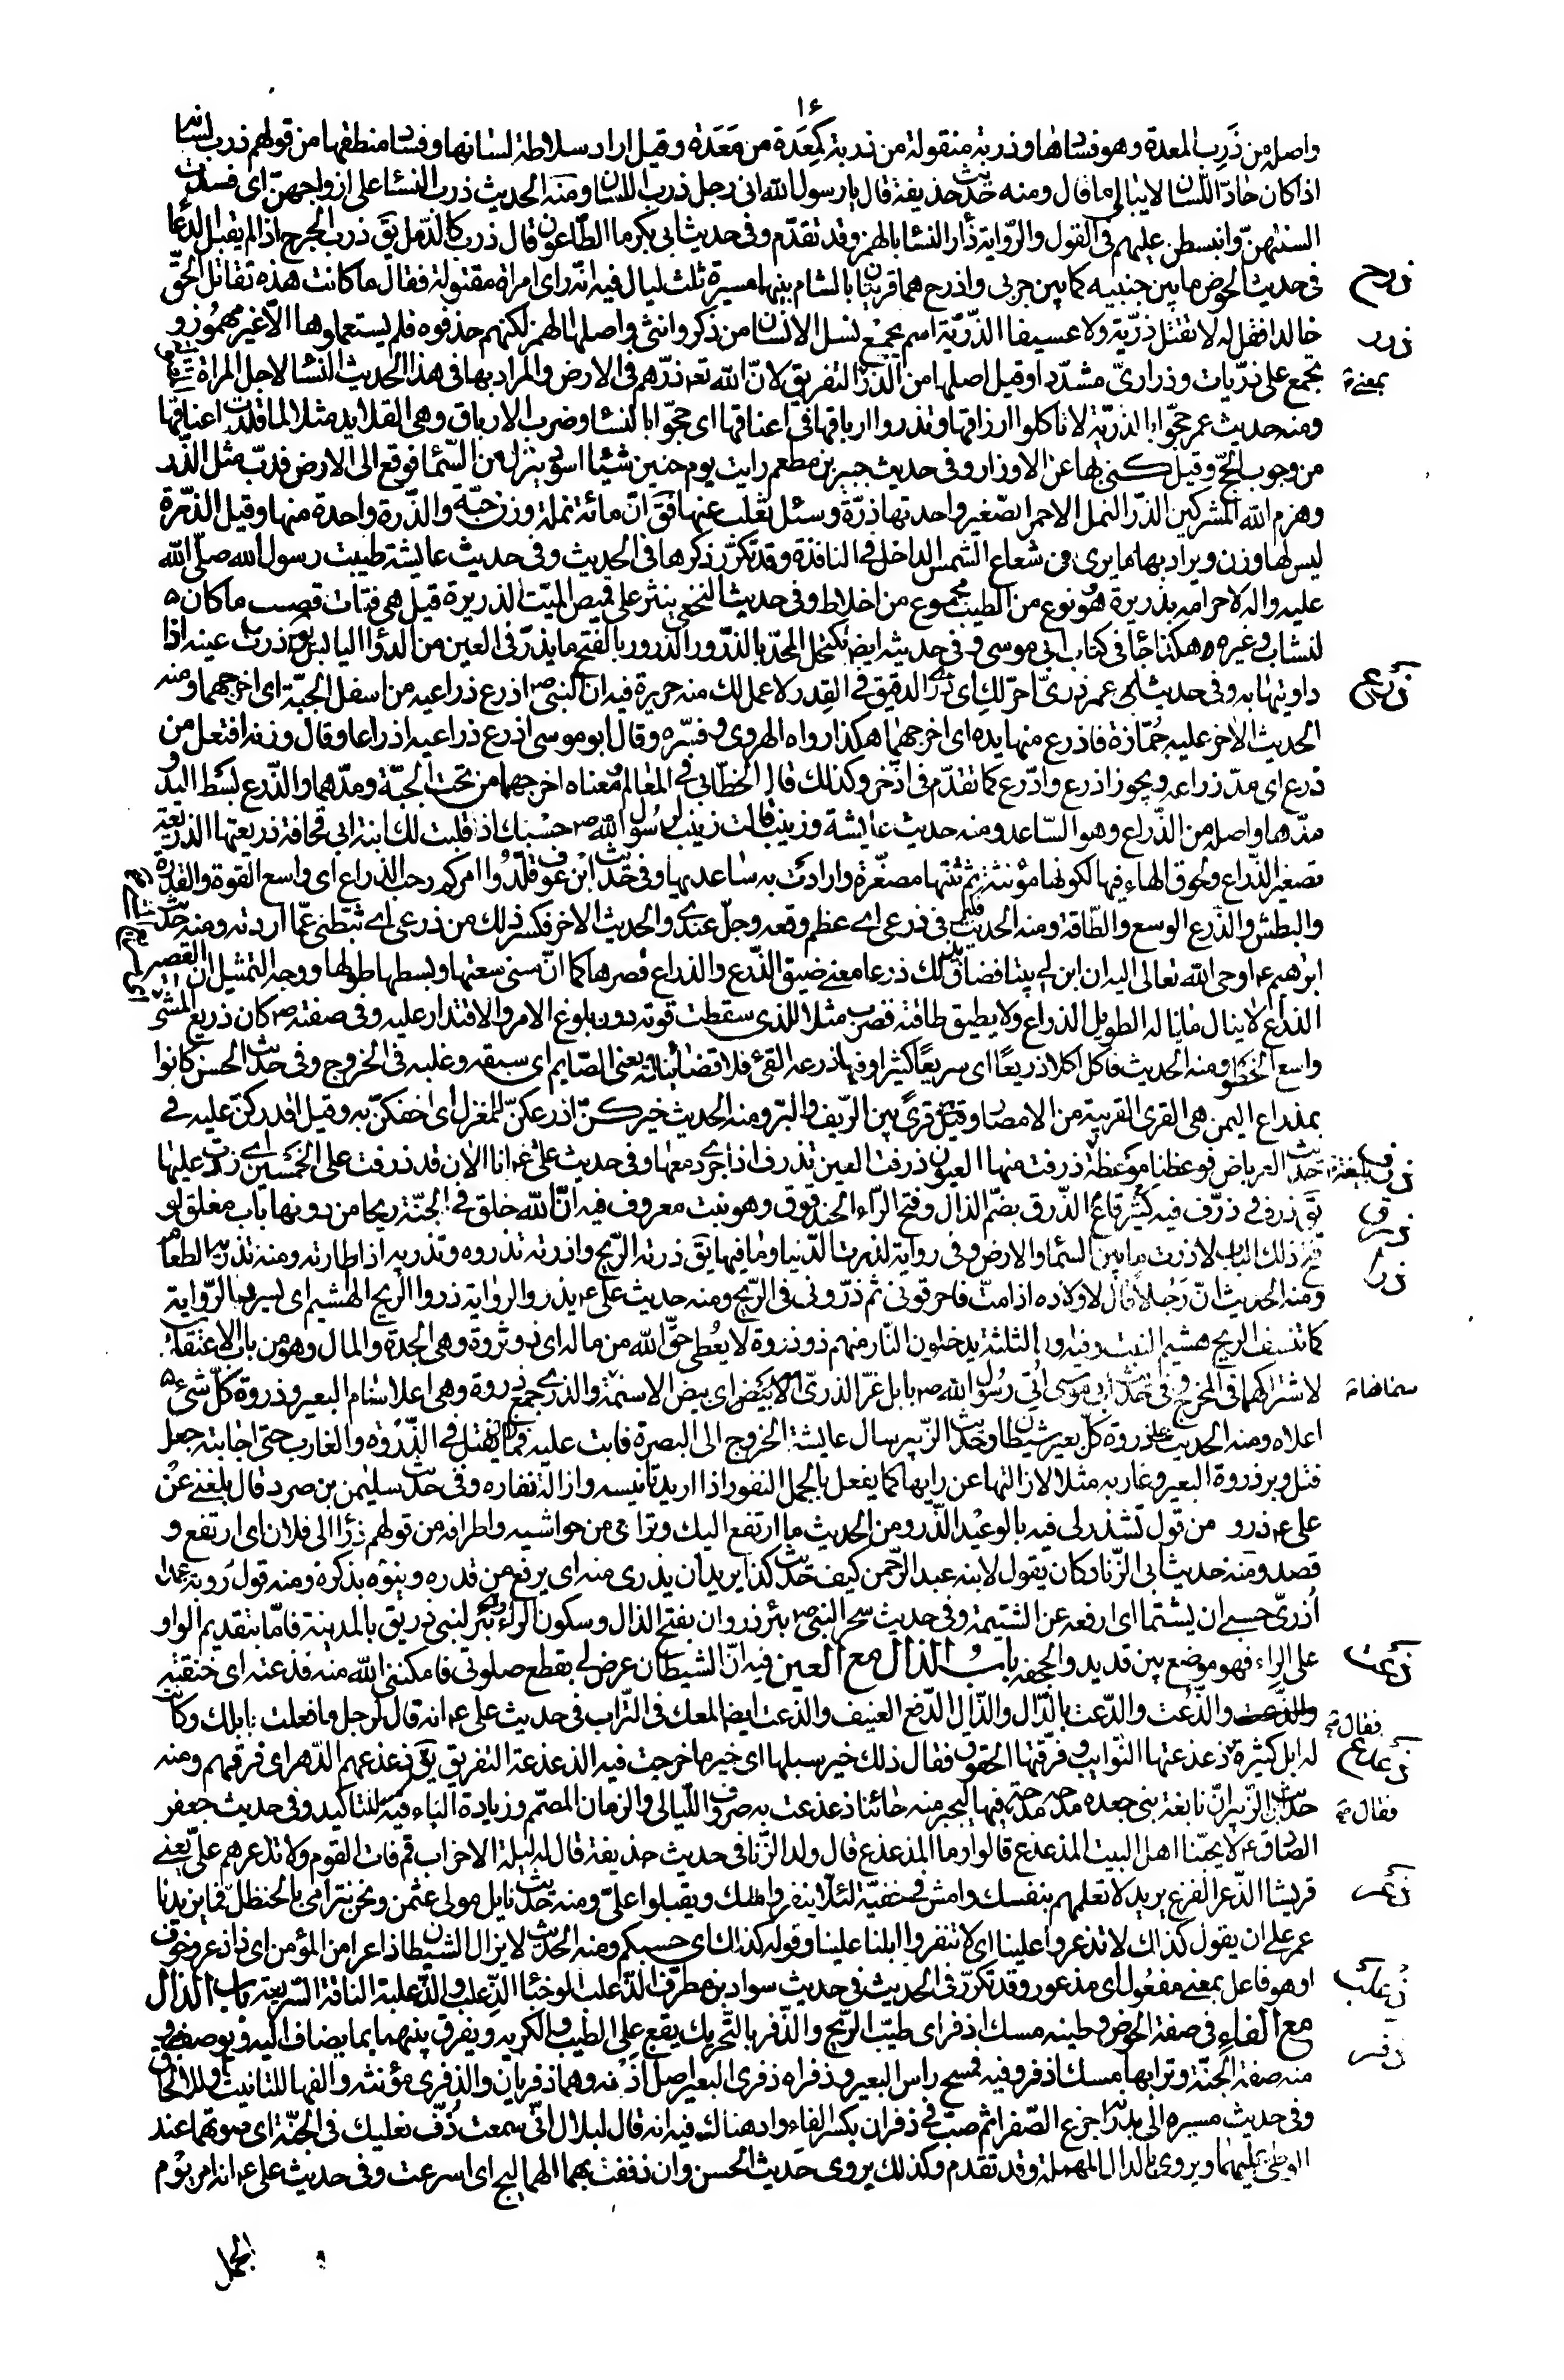 ١٤
واصله من ذَرِب المعدة وهو فسادها وذربة منقولة من ذربة كمِعَدة من مَعَدة وقيل اراد سلاطة لسانها وفساد منطقها من قولهم ذرب لسانه
اذا كان حادّ اللّسان لا يبالي ما قال ومنه حديث حذيفة قال يا رسول الله انى رجل ذرب اللسان ومنه الحديث ذرب النساء على ازواجهنّ اى فسدت
السنتهنّ وانبسطن عليهم فى القول والرّواية ذأر النساء بالهمز وقد تقدّم وفى حديث ابى بكر ما الطّاعون قال ذرب كالدّمل يق ذرب الجرح اذا لم يقبل الدّواء
ذرح
فى حديث الحوض ما بين جنبيه كما بين جربى واذرح هما قريتان بالشام بينهما مسيرة ثلث ليال فيه انّه راى امراة مقتولة فقال ما كانت هذه تقاتل الحَقْ
ذرر
خالدا فقل له لا تقتل ذرّية ولا عسيفا الذّرّيّة اسم يجمع نسل الانسان من ذكر وانثى واصلها الهمز لكنهم حذفوه فلم يستعملوها الّا غير مهموز و
تجمع على ذرّيات وذرارىّ مشدّدا وقيل اصلها من الذّرّ التفريق لانّ الله تع ذرّهم فى الارض والمراد بها فى هذا الحديث النساء لاجل المراة
بمعنى
ومنه حديث عمر حجّوا بالذرّيّة لا تاكلوا ارزاقها وتذروا ارباقها فى اعناقها اى حجّوا بالنساء وضرب الارباق وهى القلايد مثلا لما قلّدت اعناقها
من وجوب الحجّ وقيل كنى بها عن الاوزار وفى حديث جبير بن مطعم رايت يوم حنين شيئا اسود ينزل من السّماء فوقع الى الارض فدبّ مثل الذّر
وهزم الله المشركين الذّر النمل الاحمر الصّغير واحدتها ذرّة وسئل ثعلب عنها فق انّ مائة نملة وزن حبّة والذّرة واحدة منها وقيل الذّرة
ليس لها وزن ويراد بها ما يرى من شعاع الشمس الداخل فى النافذة وقد تكرّر ذكرها فى الحديث وفى حديث عايشة طيبت رسول الله صلّى الله
عليه واله لاحرامه بذريرة هو نوع من الطيب مجموع من اخلاط وفى حديث النخعى ينثر على قميص الميّت الذريرة قيل هى فتات قصب ما كان
لنشاب وغيره هكذا جاء فى كتاب ابى موسى وفى حديثه ايضا تكتحل المحدّ بالذّرور الذرور بالفتح ما يذرّ فى العين من الدواء اليابس يق ذررت عينه اذا
ذرع
داويتها به وفى حديث عمر ذرىّ احرّ لكِ اى ذرى الدقيق فى القِدر لاعمل لك منه حريرة فيه ان النبى ص اذرع ذراعيه من اسفل الجبّة اى اخرجهما ومنه
الحديث الاخر عليه جُمّازة فاذرع منها يده اى اخرجهما هكذا رواه الهروى وفسّره وقال ابو موسى اذرع ذراعيه اذراعا وقال وزنه افتعل من
ذرع اى مدّ ذراعه ويجوز اذرع وادّرع كما تقدّم فى اذّخر وكذلك قال الخطّابى فى المعالم معناه اخرجهما من تحت الجبّة ومدّهما والذّرع بسط اليد و
مدّهما واصله من الذّراع وهو السّاعد ومنه حديث عايشة وزينب قالت زينب لرسول الله ص حسبك اذ قلبت لك ابنة ابى قحافة ذريعتها الذريّعة
تصغير الذّراع ولحوق الهاء فيها لكونها مؤنثة ثم ثنتها مصغّرة وارادت به ساعديها وفى حديث ابن عوف قلّدوا امركم رحب الذراع اى واسع القوة والقدرة
والبطش والذّرع الوسع والطّاقة ومنه الحديث فى ذرعى اى عظم وقعه وجلّ عندى والحديث الاخر فكسر ذلك من ذرعى اى ثبّطنى عمّا اردته ومنه حديث
ابرهيم ع اوحى الله تعالى اليه ان ابن لى بيتا فضاق بذلك ذرعا معنى ضيق الذّرع والذراع قصرها كما انّ معنى سعتها وبسطها طولها ووجه التمثيل ان القصير
الذراع لا ينال ما ينا له الطويل الذراع ولا يطيق طاقته فضرب مثلا للذى سقطت قوته دون بلوغ الامر والاقتدار عليه وفى صفته ص كان ذريع المشى
واسع الخطو ومنه الحديث فاكل اكلا ذريعًا اى سريعًا كثيرا وفيه من ذرعه القئ فلا قضاء عليه يعنى الصّايم اى سبقه وغلبه فى الخروج وفى حديث الحسن كانوا
بمذراع اليمن هى القرى القريبة من الامصار وقيل هى قرىً بين الرّيف والبرّ ومنه الحديث خيركنّ اذرعكنّ للمغزل اى اخفكنّ به وقيل اقدركنّ عليه فى
ذرف بليغة
حديث العرباض فوعظنا موعظة ذرفت منها العيون ذرفت العين تذرف اذا جرى دمعها وفى حديث على ع ها انا الان قد ذرفت على الخمسين اى زدت عليها
ذرق
يق ذرف و ذرّف فيه كثير قاع الذّرق بضمّ الذال وفتح الرّاء الحندقوق وهو نبت معروف فيه انّ الله خلق فى الجنّة ريحا من دونها باب مغلق لو
ذرا
فتح ذلك الباب لاذرت ما بين السّماء والارض وفى رواية لذرت الدّنيا وما فيها يق ذرته الرّيح واذرته تذروه وتذريه اذا طارته ومنه تذرية الطعام
ومنه الحديث انّ رَجُلا قال لاولاده اذا متّ فاحرقونى ثم ذرّونى فى الرّيح ومنه حديث على ع يذرو الرواية ذروا الريح الهشيم اى يسرد الرّواية
كما تنسف الريح هشيم النبت وفيه اول الثلثة يدخلون النّار منهم ذو ذروة لا يُعطى حقّ الله من ماله اى ذو ثروة وهى الجدة والمال وهو من باب الاعتقاب
سماها
لاشتراكهما فى المخرج وفى حديث ابى موسى اُتى رسول الله ص بابل غرّ الذرىّ اى بيض الاسنمة والذرى جمع ذروة وهى اعلا سنام البعير وذروة كلّ شئ
اعلاه ومنه الحديث على ذروة كلّ بعير شيطان وحديث الزّبير سال عايشة الخروج الى البصرة فابت عليه فما زال يفتل فى الذّروه والغارب حتى اجابته جعل
فتل وبر ذروة البعير وغاربه مثلا لازالتها عن رايها كما يفعل بالجمل النفور اذا اريد تانيسه وازالة نفاره وفى حديث سليمن بن صرد قال بلغنى عن
على ع ذرو من قول تشذر لى فيه بالوعيد الذّرو من الحديث ما ارتفع اليك وترامى من حواشيه واطرافه من قولهم ذرأ الى فلان اى ارتفع و
قصد ومنه حديث ابى الزّناد كان يقول لابنه عبد الرّحمن كيف حديث كذا يريد ان يذرى منه اى يرفع من قدره وينوّه بذكره ومنه قول رُوبة عمدا
اُذرىّ حسبى ان يشتما اى ارفعه عن الشتيمة وفى حديث سحر النبى ص بئر ذروان بفتح الذال وسكون الراء وهى بئر لبنى زريق بالمدينة فامّا بتقديم الواو
ذعت
على الراء فهو موضع بين قديد والجحفة باب الذال مع العين فيه انّ الشيطان عرض لى بقطع صلوتى فامكننى الله منه فذعته اى خنقته
والذّعت والدّعت بالذّال والدّال الدّفع العنيف والذعت ايضا المعك فى التّراب فى حديث على ع انه قال لرجل ما فعلت بابلك وكانت
ذعذع فقال
له ابل كثيرة ذعذعتها النّوايب وفرقتها الحقوق فقال ذلك خير سبلها اى خير ما خرجت فيه الذعذعة التفريق يق ذعذعهم الدّهر اى فرقهم ومنه
فقال
حديث ابن الزّبير انّ نابغة بنى جعده مدحه مدحة فيها ليجبر منه جائنا ذعذعت به صروف اللّيالى والزمان المصمّم وزيادة الباء فيه للتاكيد وفى حديث جعفر
الصّادق ع لا يحبّنا اهل البيت المذعذع قالوا وما المذعذع قال ولد الزّنا فى حديث حذيفة قال له ليلة الاحزاب قم فات القوم ولا تذعرهم علىّ يعنى
ذعر
قريشا الذّعر الفزع يريد لا تعلمهم بنفسك وامش فى خفيّة لئلّا ينفروا منك ويقبلوا علىّ ومنه حديث نايل مولى عثمن ونحن نترامى بالحنظل فما يزيدنا
عمر على ان يقول كذاك لا تذعروا علينا اى لا تنفروا ابلنا علينا وقوله كذاك اى حسبكم ومنه الحديث لا يزال الشيطان ذاعرا من المؤمن اى ذا ذعر وخوف
ذعلب
او هو فاعل بمعنى مفعول اى مذعور وقد تكرّر فى الحديث فى حديث سواد بن مطرّف الذّعلب الوجناء الذّعلب والذّعلبة الناقة السّريعة باب الذال
ذفر
مع الفاء فى صفة الحوض وطينه مسك اذفر اى طيّب الرّيح والذّفر بالتّحريك يقع على الطيب والكريه ويفرق بينهما بما يضاف اليه ويوصف به و
منه صفة الجنّة وترابها مسك اذفر وفيه فمسح راس البعير وذفراه ذفرى البعير اصل اذنه وهما ذفريان والذفرى مؤنثه والفها للتانيث او للالحاق
وفى حديث مسيره الى بدر انّه جزع الصّفرا ثم صبّ فى ذفران بكسر الفاء واد هناك فيه انه قال لبلال انّى سمعت ذُفّ نعليك فى الجنّة اى صوتهما عند
الوطئ عليهما ويروى بالدال المهملة وقد تقدم وكذلك يروى حديث الحسن وان ذففت بهما الهماليج اى اسرعت وفى حديث على ع انه امر يوم
الجمل